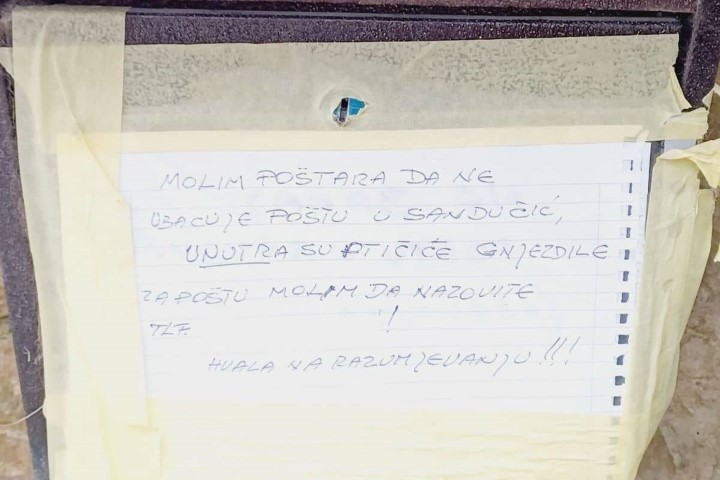 MOLIM POŠTARA DA NE
UBACUJE POŠTU U SANDUČIĆ,
UNUTRA SU PTIČIĆE GNJEZDILE
ZA POŠTU MOLIM DA NAZOVITE
TLF. !
HVALA NA RAZUMJEVANJU!!!